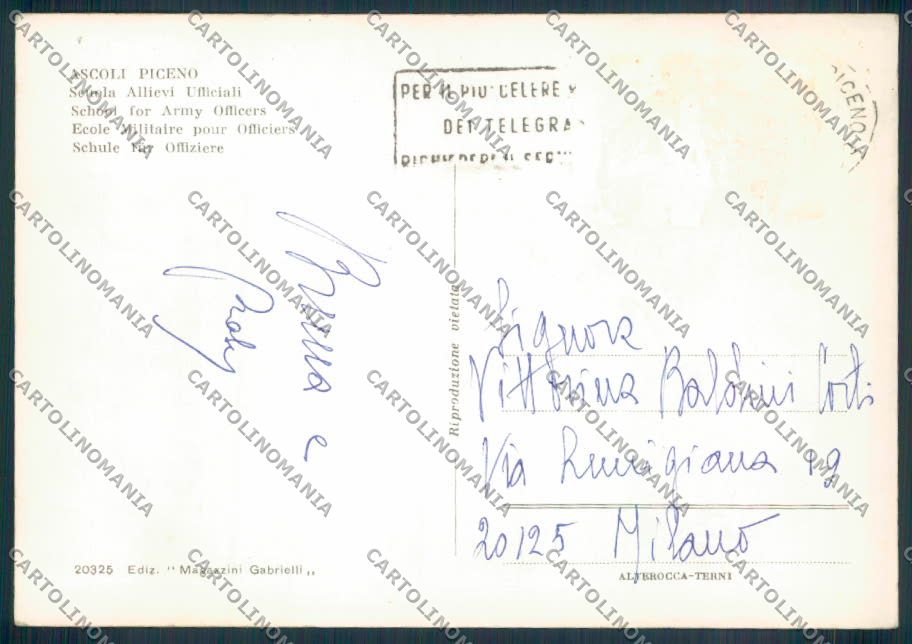 ASCOLI PICENO
Scuola Allievi Ufficiali
School for Army Officers
Ecole Militaire pour Officiers
Schule für Offiziere
PER IL PIU' CELERE
DEI TELEGRA
RICHIEDERE IL SERV
PICENO
Bruna e
Riproduzione vietata
Signora
Vittorina Baldini Corti
Via Lunigiana 19
20125 Milano
20325 Ediz. "Magazzini Gabrielli"
ALTEROCCA-TERNI
CARTOLINOMANIA